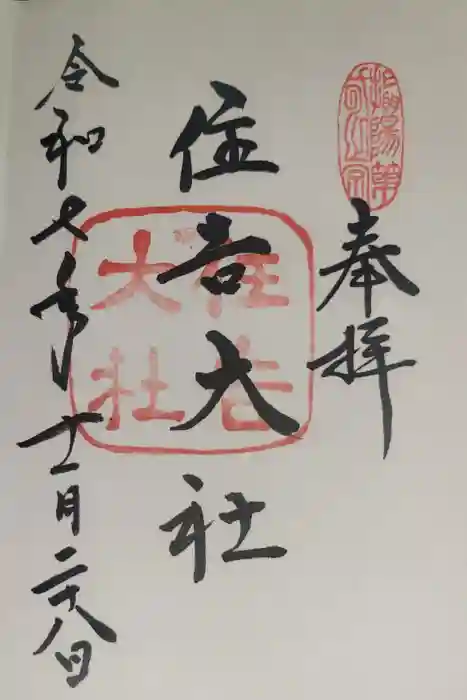 奉拝
住吉大社
住吉
大社
令和七年十一月二十八日